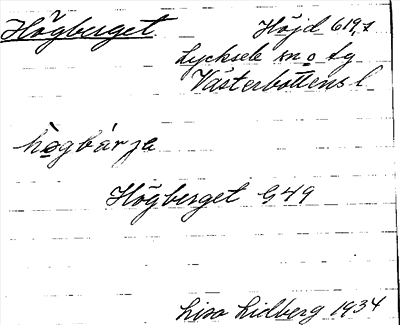 Högberget. Höjd 619,1
Lycksele sn o tg
Västerbottens l
högbárja
Högberget G49
Lisa Lidberg 1934